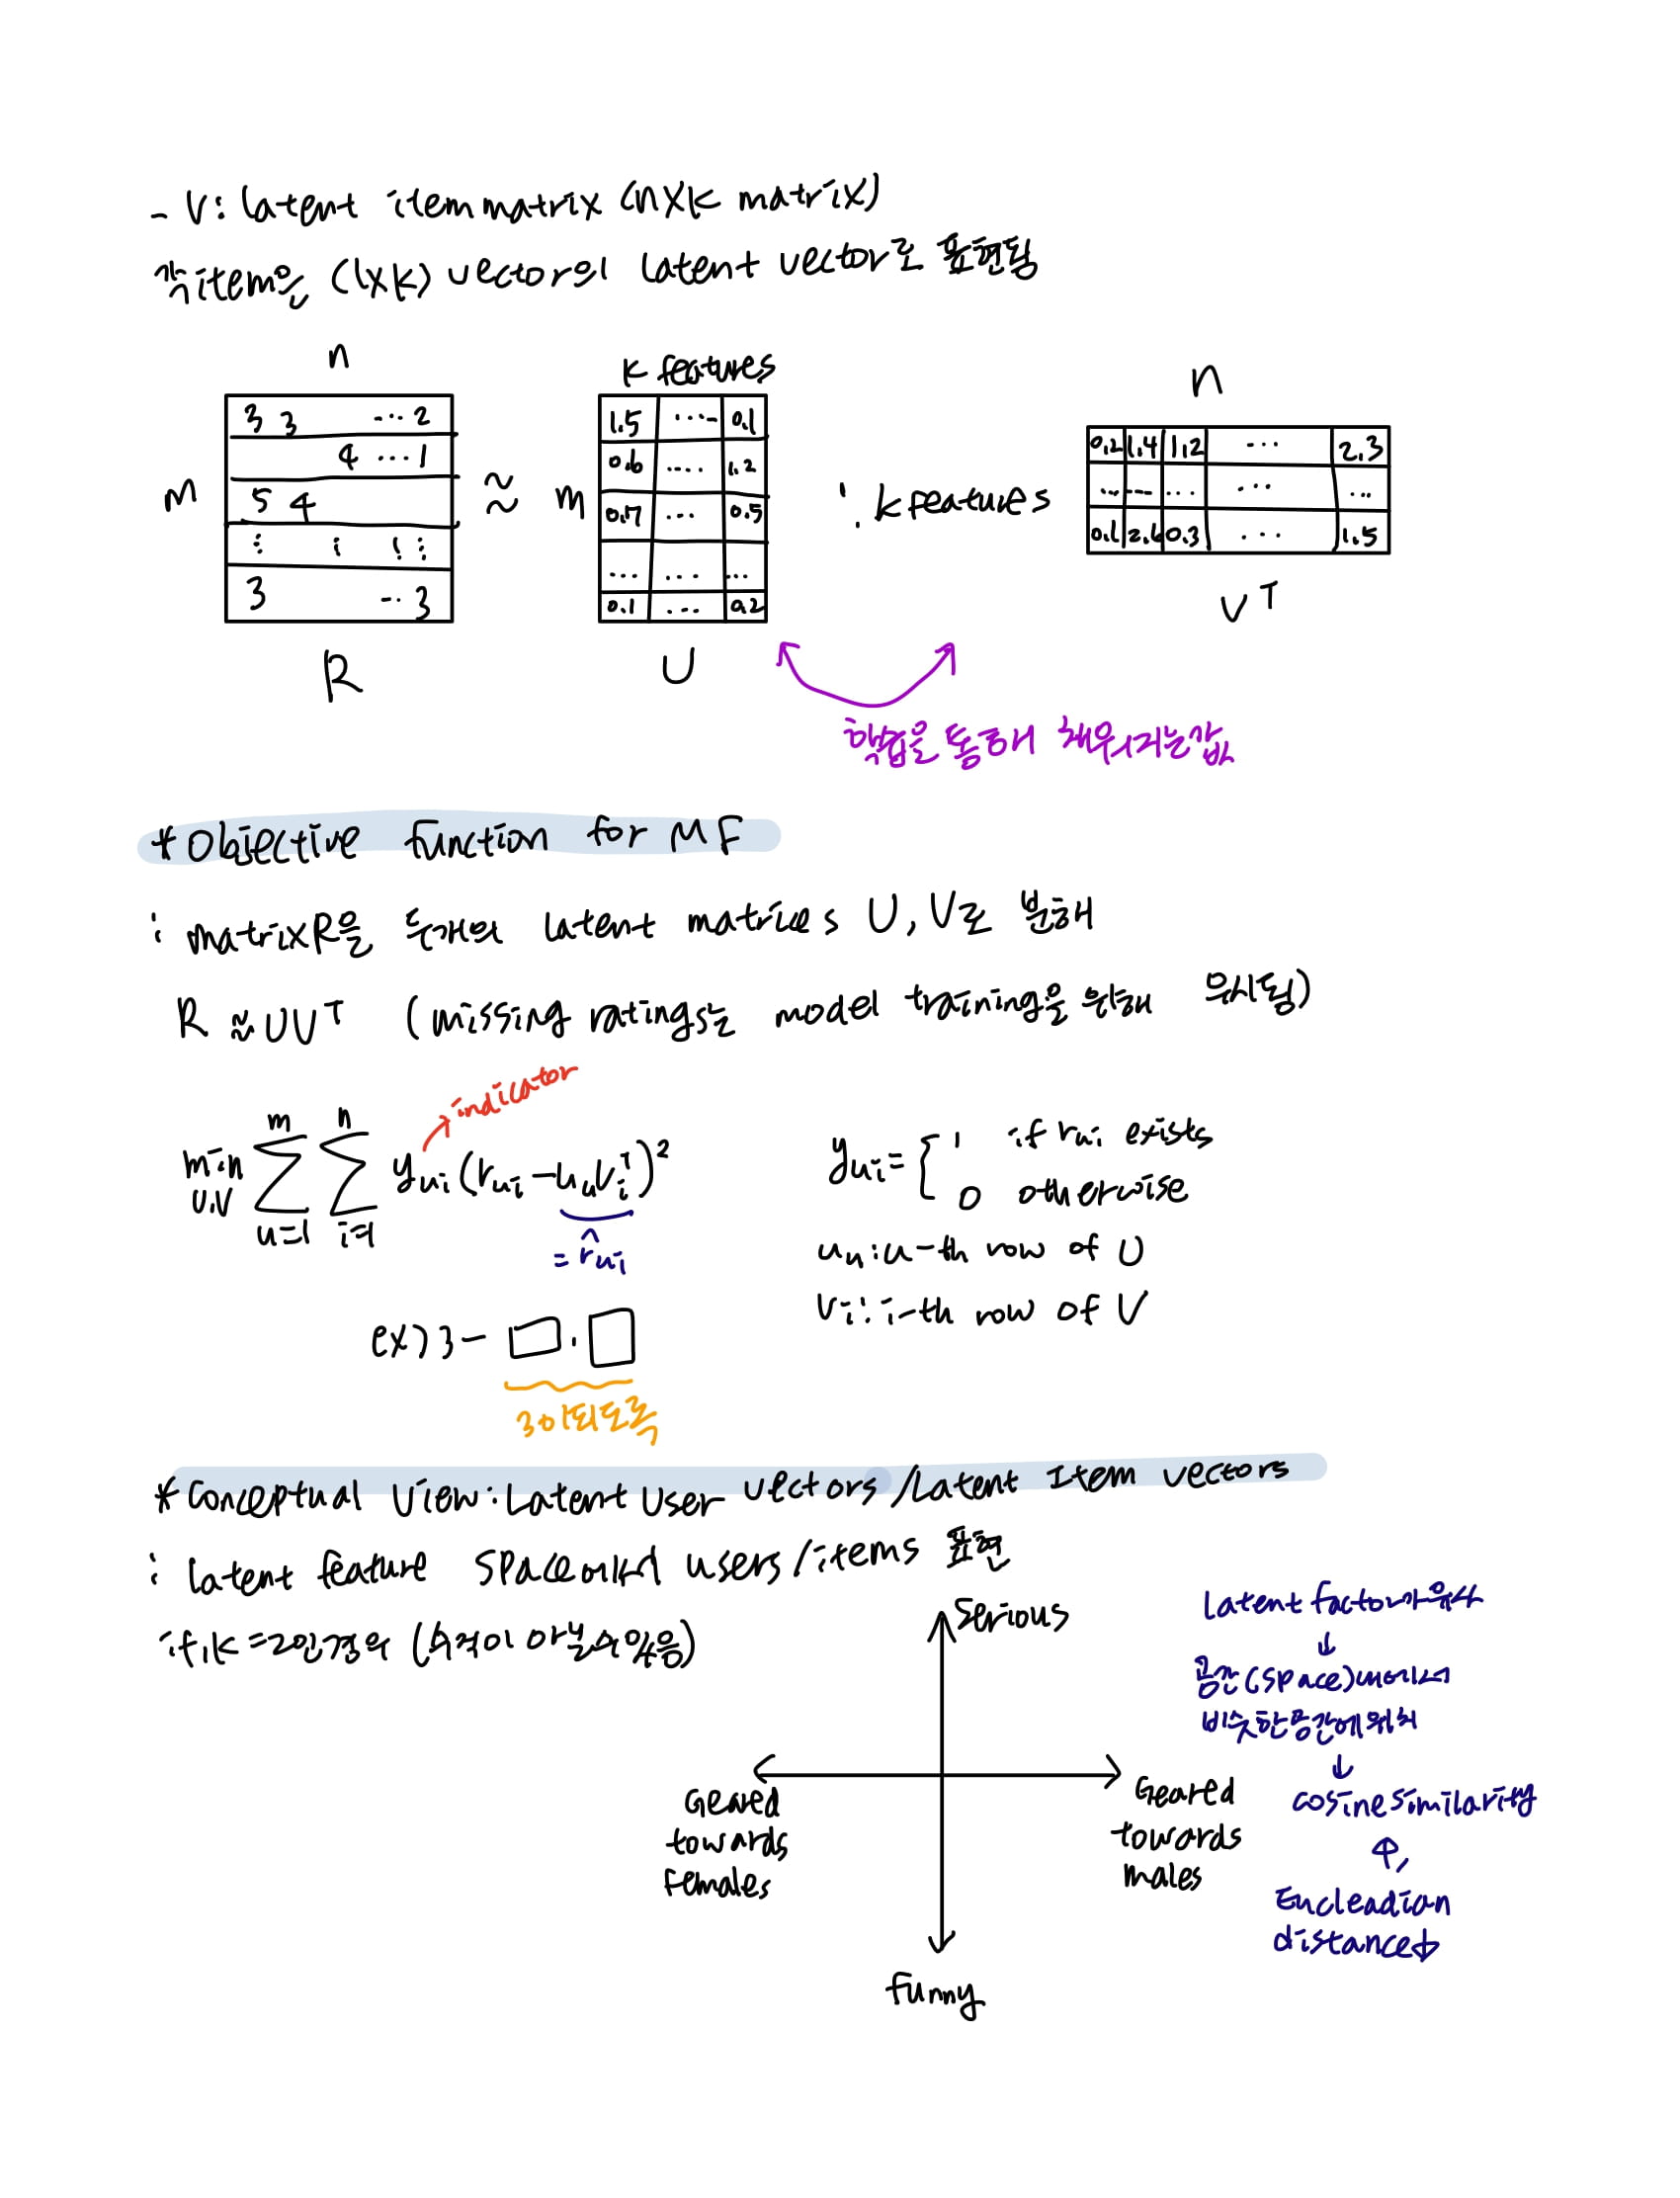 - V: Latent item matrix (n×k matrix)
각 item은 (1×k) vector의 latent vector로 표현됨
n
k features
n
3 3 ... 2
4 ... 1
5 4
⋮ ⋮ ⋮ ⋮
3 .. 3
m
R
≈
m
1.5 ... 0.1
0.6 .... 1.2
0.7 ... 0.5
... ... ...
0.1 ... 0.2
U
k features
0.2 1.4 1.2 ... 2.3
... ... ... ... ...
0.1 2.6 0.3 ... 1.5
V^T
학습을 통해 채워지는 값
* Objective function for MF
: matrix R을 두개의 latent matrices U, V로 분해
R ≈ UV^T (missing ratings는 model training을 위해 무시됨)
indicator
min U,V Σ u=1 m Σ i=1 n y_ui (r_ui - u_u v_i^T)^2
= r̂_ui
y_ui = { 1 if r_ui exists
0 otherwise
u_u : u-th row of U
v_i : i-th row of V
ex) 3 - □ · □
3이 되도록
* Conceptual View: Latent User Vectors / Latent Item vectors
: latent feature space에서 users/items 표현
if k = 2인 경우 (수적이 아닐 수 있음)
Serious
Geared
towards
females
Geared
towards
males
funny
Latent factor가 유사
↓
공간(space)내에서
비슷한 공간에 위치
↓
cosine similarity
↑,
Eucleadian
distance↓